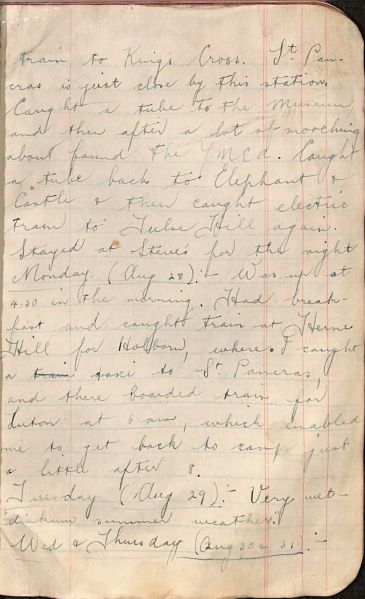 train to King's Cross. St Pan-
cras is just close by this station.
Caught a tube to the Museum
and then after a lot of mooching
about found the YMCA. Caught
a tube back to Elephant &
Castle & then caught electric
train to Tulse Hill again.
Stayed at Steve's for the night
Monday (Aug 28):- Was up at
4.30 in the morning. Had break-
fast and caught train at Herne
Hill for Holborn, where I caught
a train taxi to St. Pancras,
and there boarded train for
Luton at 6 am, which enabled
me to get back to camp just
a little after 8.
Tuesday (Aug 29):- Very wet-
"dinkum summer weather."
Wed & Thursday (Aug 30 & 31):-